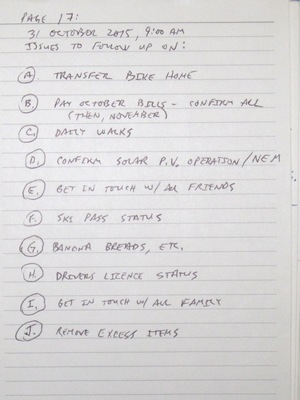 PAGE 17:
31 OCTOBER 2015, 9:00 AM
ISSUES TO FOLLOW UP ON:
A. TRANSFER BIKE HOME
B. PAY OCTOBER BILLS - CONFIRM ALL
(THEN, NOVEMBER)
C. DAILY WALKS
D. CONFIRM SOLAR P.V. OPERATION/NEM
E. GET IN TOUCH W/ ALL FRIENDS
F. SKS PASS STATUS
G. BANANA BREADS, ETC.
H. DRIVERS LICENCE STATUS
I. GET IN TOUCH W/ ALL FAMILY
J. REMOVE EXCESS ITEMS